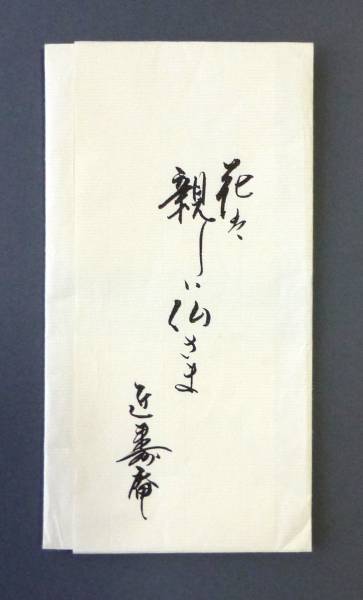 花は
親しい仏さま
近壽庵